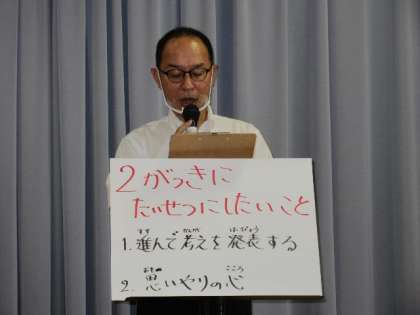 2がっきに
たいせつにしたいこと
1. 進んで考えを発表する
2. 思いやりの心